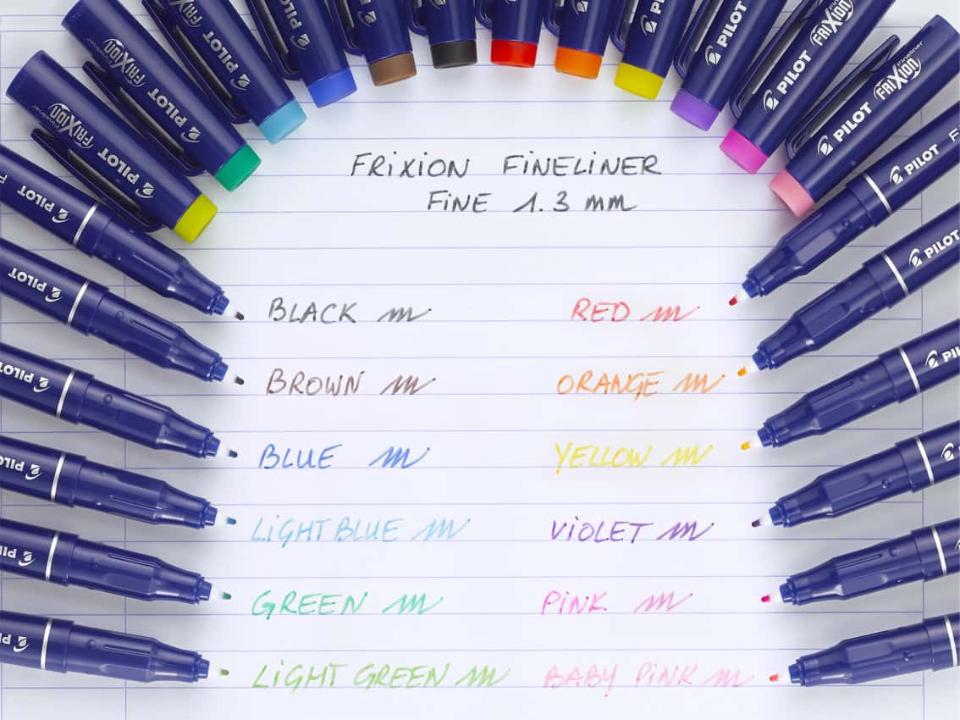 FRiXiON FiNELiNER
FiNE 1.3 mm
BLACK
BROWN
BLUE
LiGHT BLUE
GREEN
LiGHT GREEN
RED
ORANGE
YELLOW
ViOLET
PiNK
BABY PiNK
FRIXION
PILOT
FRIXION
PILOT
PILOT
PILOT
PILOT
PILOT
PILOT
FRIXION
PILOT
FRIXION
PILOT
PILOT
PILOT
PILOT
PILOT
PILOT
PILOT
PILOT